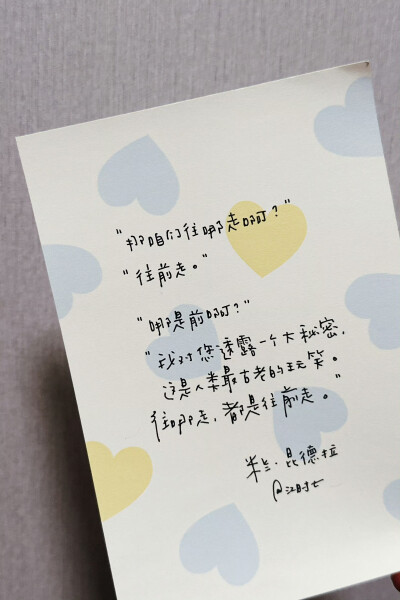 "那咱们往哪走啊?"
"往前走。"
"哪是前啊?"
"我对您透露一个大秘密,
这是人类最古老的玩笑。
往哪走,都是往前走。"
米兰·昆德拉